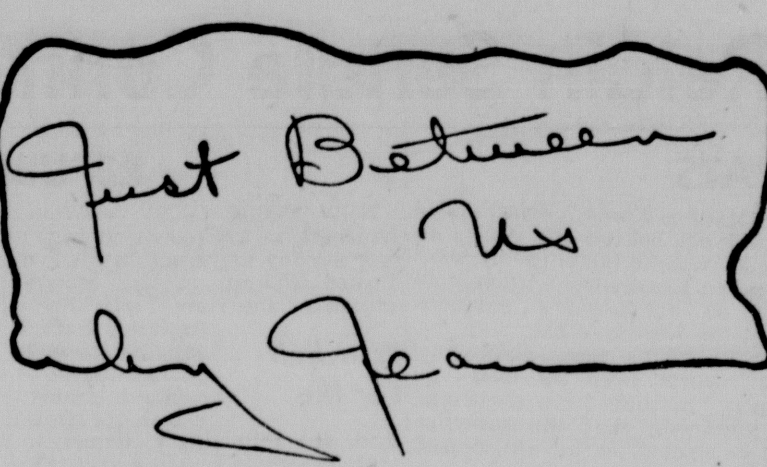 Just Between
Us
by Jean